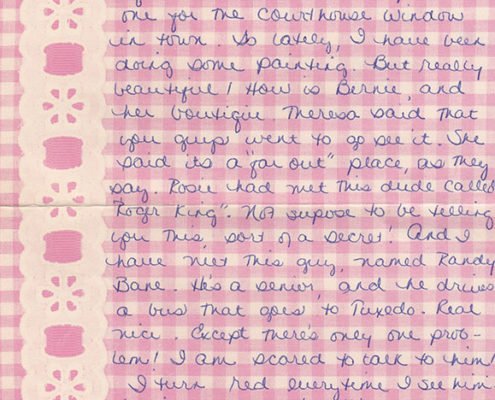 one for the courthouse window
in town. So lately, I have been
doing some painting. But really
beautiful! How is Bernie, and
her boutique. Theresa said that
you guys went to go see it. She
said its a "far out" place, as they
say. Rosie had met this dude called
"Roger King". Not supose to be telling
you this, sort of a secret! And I
have met this guy, named Randy
Bane. He's a senior, and he drives
a bus that goes to Tuxedo. Real
nice. Except there's only one prob-
lem! I am scared to talk to him!
I turn red everytime I see him.